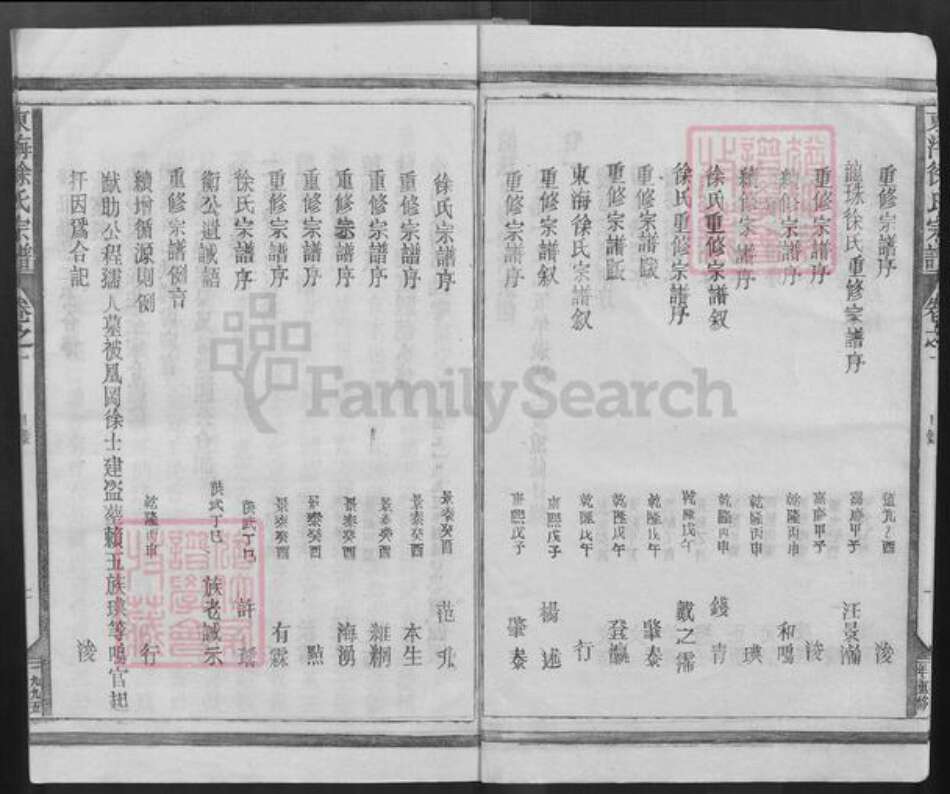 重修宗譜序 酉 浚
龍珠徐氏重修宗譜序 嘉慶甲子 汪景瀚
重修宗譜序 嘉慶甲子 浚
宗譜序 乾隆丙申 和鳴
宗譜序 乾隆丙申 瑛
徐氏重修宗譜叙 乾隆丙申 錢青
徐氏重修宗譜序 乾隆戊午 戴之濡
重修宗譜 乾隆戊午 肇泰
重修宗譜 乾隆戊午 登瀛
東海徐氏宗譜叙 乾隆戊午 行
重修宗譜叙 康熙戊子 楊述
重修宗譜序 康熙戊子 肇泰
徐氏宗譜序 景泰癸酉 范升
重修宗譜序 景泰癸酉 本生
重修宗譜序 景泰癸酉
重修宗譜序 景泰癸酉 海湧
重修宗譜序 景泰癸酉 點
重修宗譜序 景泰癸酉 有霖
徐氏宗譜序 洪武丁巳 許
衡公遺誡語 洪武丁巳 族老誠示
重修宗譜例言
續增循源則例 乾隆丙申 行
猷助公程孺人墓被鳳岡徐士建盜葬賴五族璞等鳴官起
扦因爲合記 浚
東海徐氏宗譜 卷之一 目錄
一九九五
年重修
FamilySearch